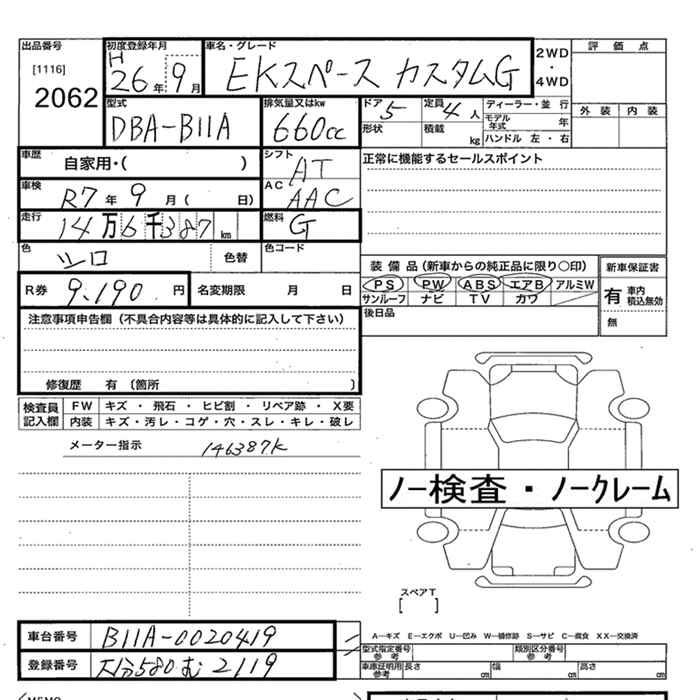 出品番号 初度登録年月 車名・グレード 2WD・4WD 評価点
[1116] H
2062 26年 9月 EKスペース カスタムG
型式 排気量又はkw ドア 5 定員 4人 ディーラー・並行 外装 内装
DBA-B11A 660cc 形状 積載 kg モデル年式 年
ハンドル 左・右
車歴 自家用・( ) シフト AT 正常に機能するセールスポイント
車検 R7年 9月( 日) AC AAC
走行 14万6千387km 燃料 G
色 シロ 色替 色コード
装備品(新車からの純正品に限り○印) 新車保証書
R券 9,190円 名変期限 月 日 PS PW ABS エアB アルミW 有 車内積込無効
サンルーフ ナビ TV カワ
注意事項申告欄(不具合内容等は具体的に記入して下さい) 後日品 無
修復歴 有 〔箇所 〕
検査員記入欄 FW キズ・飛石・ヒビ割・リペア跡・X要
内装 キズ・汚レ・コゲ・穴・スレ・キレ・破レ
メーター指示 146387K
ノー検査・ノークレーム
スペアT
[ ]
車台番号 B11A-0020419 A―キズ E―エクボ U―凹み W―補修跡 S―サビ C―腐食 XX―交換済
型式指定番号参考 類別区分番号参考
登録番号 580 む 2119 車庫証明用参考 長さ cm 幅 cm 高さ cm